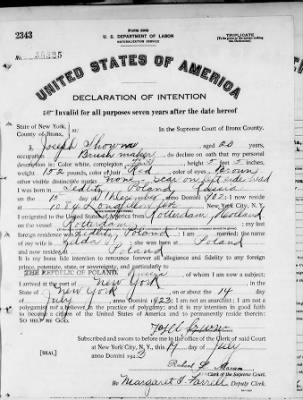 2343
FORM 2203
U. S. DEPARTMENT OF LABOR
NATURALIZATION SERVICE
TRIPLICATE
No.
UNITED STATES OF AMERICA
DECLARATION OF INTENTION
Invalid for all purposes seven years after the date hereof
State of New York,
County of Bronx,
In the Supreme Court of Bronx County.
I, Joseph aged 20 years,
occupation Brushmaker, do declare on oath that my personal
description is: Color white, complexion Fair, height 5 feet 7 inches,
weight 152 pounds, color of hair Red, color of eyes Brown
other visible distinctive marks none, scar on left side
I was born in Poland Russia
on the 15 day of December, anno Domini 1902; I now reside
at New York City, N. Y.
I emigrated to the United States of America from Rotterdam, Holland
on the vessel Rotterdam; my last
foreign residence was Poland; I am married; the name
of my wife is; she was born at Poland
and now resides at Poland
It is my bona fide intention to renounce forever all allegiance and fidelity to any foreign
prince, potentate, state, or sovereignty, and particularly to
THE REPUBLIC OF POLAND, of whom I am now a subject;
I arrived at the port of New York, in the
State of New York, on or about the 14 day
of July, anno Domini 1922; I am not an anarchist; I am not a
polygamist nor a believer in the practice of polygamy; and it is my intention in good faith
to become a citizen of the United States of America and to permanently reside therein:
SO HELP ME GOD.
Subscribed and sworn to before me in the office of the Clerk of said Court
at New York City, N. Y., this day of July
anno Domini 192
[SEAL]
Clerk of the Supreme Court.
By Margaret T. Farrell, Deputy Clerk.